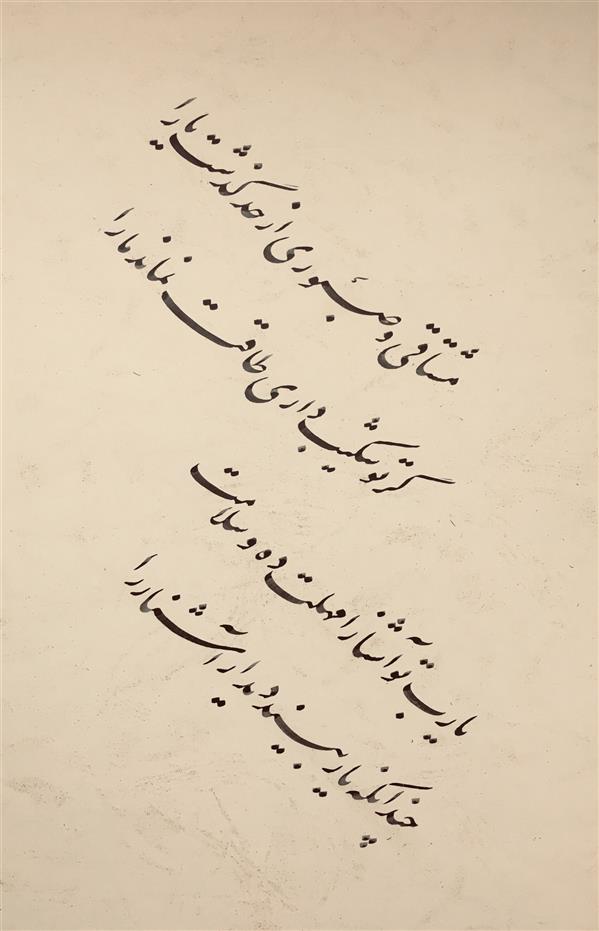 مشتاقی و صبوری از حد گذشت یارا
گر تو شکیب داری طاقت نماند ما را
یارب تو آشنا را مهلت ده و سلامت
چندانکه یار ببیند دیدار آشنا را